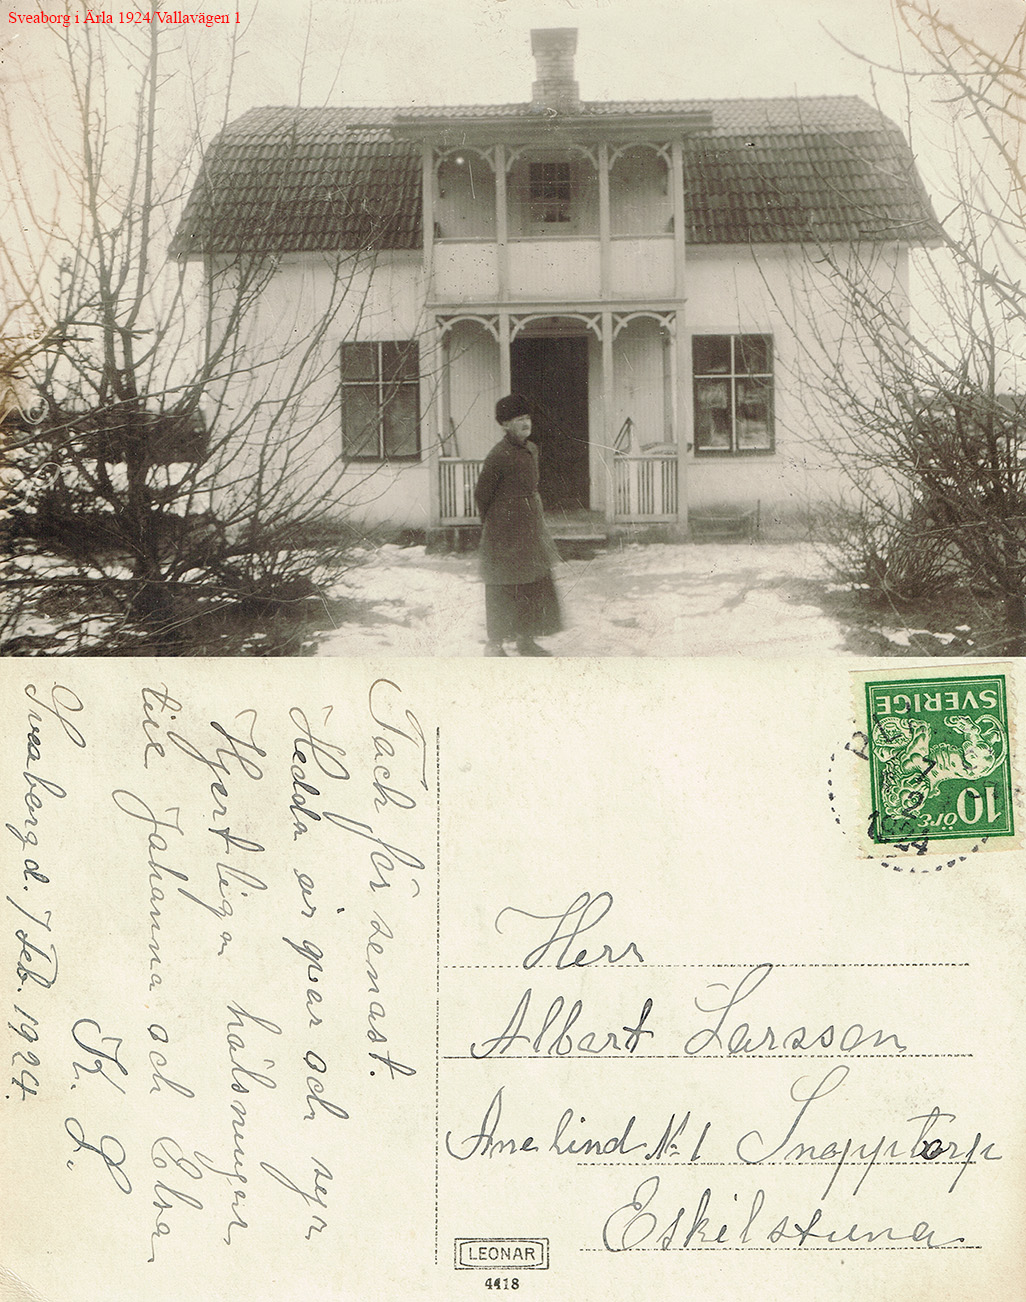 Sveaborg i Ärla 1924/Vallavägen 1
Tack för senast.
Hedda är qvar och syr
Hjertliga hälsningar
till Johanna och Elsa
K. L.
Sveaborg d. 7 Feb. 1924.
SVERIGE
10 ÖRE
Herr
Albert Larsson
Anelund No 1 Snopptorp
Eskilstuna
LEONAR
4418